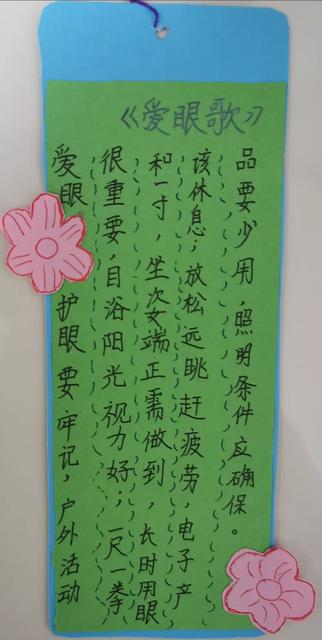 《爱眼歌》
爱眼护眼要牢记，户外活动
很重要，目浴阳光视力好；一尺一拳
和一寸，坐姿端正需做到，长时用眼
该休息；放松远眺赶疲劳，电子产
品要少用，照明条件应确保。